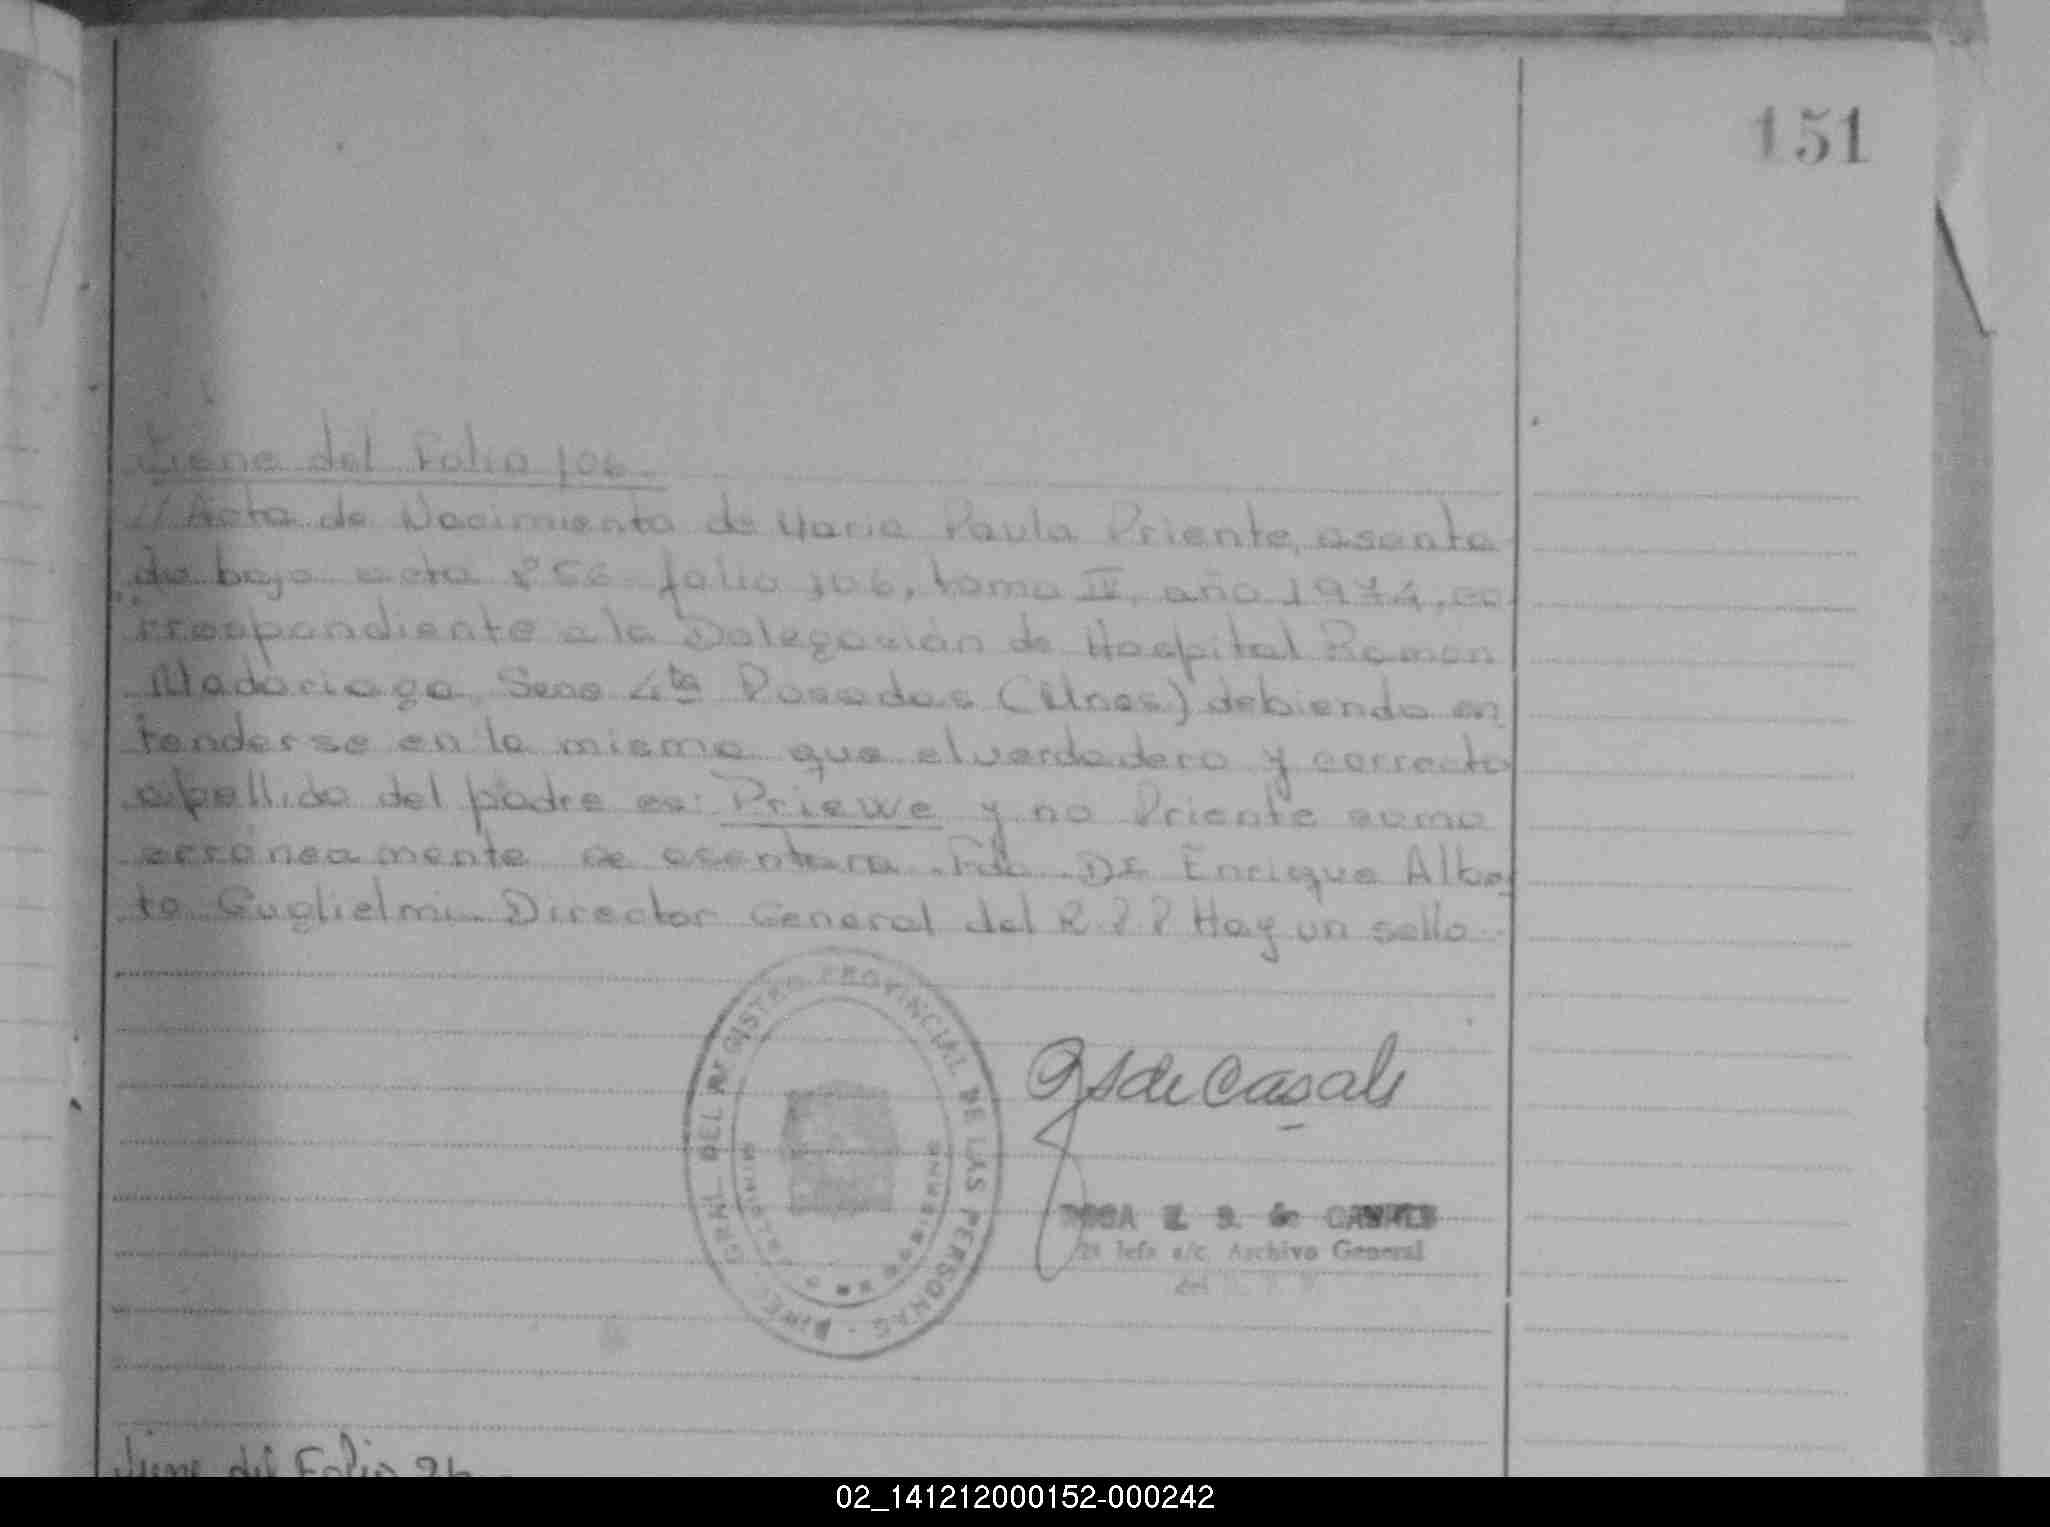 151
Viene del Folio 106.
// Acta de Nacimiento de Maria Paula Priente, asenta
da bajo acta 856 folio 106, tomo IV, año 1974, co
rrespondiente a la Delegación de Hospital Ramon
Madariaga, Secc 4ta Posadas (Mnes) debiendo en
tenderse en la misma que el verdadero y correcto
apellido del padre es: Priewe y no Priente como
erróneamente se asentara. Fdo. Dr Enrique Alber
to Guglielmi. Director General del R.P.P Hay un sello.
GRNL. DEL REGISTRO PROVINCIAL DE LAS PERSONAS
de Casals
ROSA S. de
2a Jefa a/c. Archivo General
del
Viene del Folio 26
02_141212000152-000242